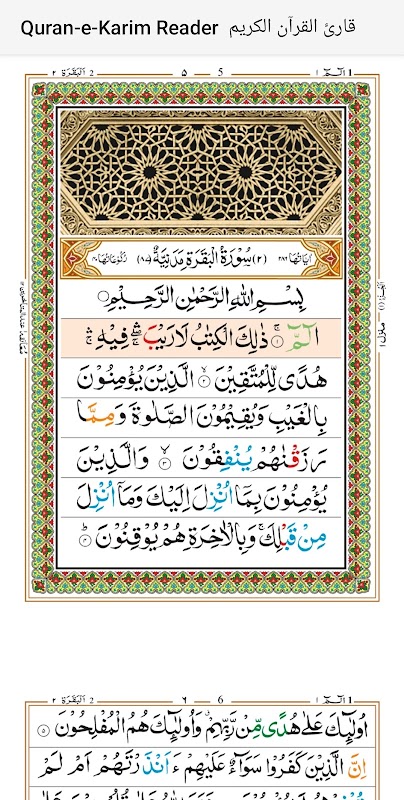 Quran-e-Karim Reader قارئ القرآن الكريم
البقرة ٢ 2 ٥ 5 الٓمّٓ ١ 1
اٰیَاتُهَا ٢٨٦ (٢) سُوْرَةُ الْبَقَرَةِ مَدَنِيَّةٌ (٨٧) رُكُوْعَاتُهَا ٤٠
بِسْمِ اللّٰهِ الرَّحْمٰنِ الرَّحِيْمِ
الٓمّٓ ۚ ﴿١﴾ ذٰلِكَ الْكِتٰبُ لَا رَيْبَ ۛۚ فِيْهِ ۛۚ
هُدًى لِّلْمُتَّقِيْنَ ۙ ﴿٢﴾ الَّذِيْنَ يُؤْمِنُوْنَ
بِالْغَيْبِ وَيُقِيْمُوْنَ الصَّلٰوةَ وَمِمَّا
رَزَقْنٰهُمْ يُنْفِقُوْنَ ۙ ﴿٣﴾ وَالَّذِيْنَ
يُؤْمِنُوْنَ بِمَاۤ اُنْزِلَ اِلَيْكَ وَمَاۤ اُنْزِلَ
مِنْ قَبْلِكَ ۚ وَبِالْاٰخِرَةِ هُمْ يُوْقِنُوْنَ ؕ ﴿٤﴾
البقرة ٢ 2 ٦ 6 الٓمّٓ ١ 1
اُولٰٓئِكَ عَلٰى هُدًى مِّنْ رَّبِّهِمْ ۗ وَاُولٰٓئِكَ هُمُ الْمُفْلِحُوْنَ ﴿٥﴾
اِنَّ الَّذِيْنَ كَفَرُوْا سَوَآءٌ عَلَيْهِمْ ءَاَنْذَرْتَهُمْ اَمْ لَمْ